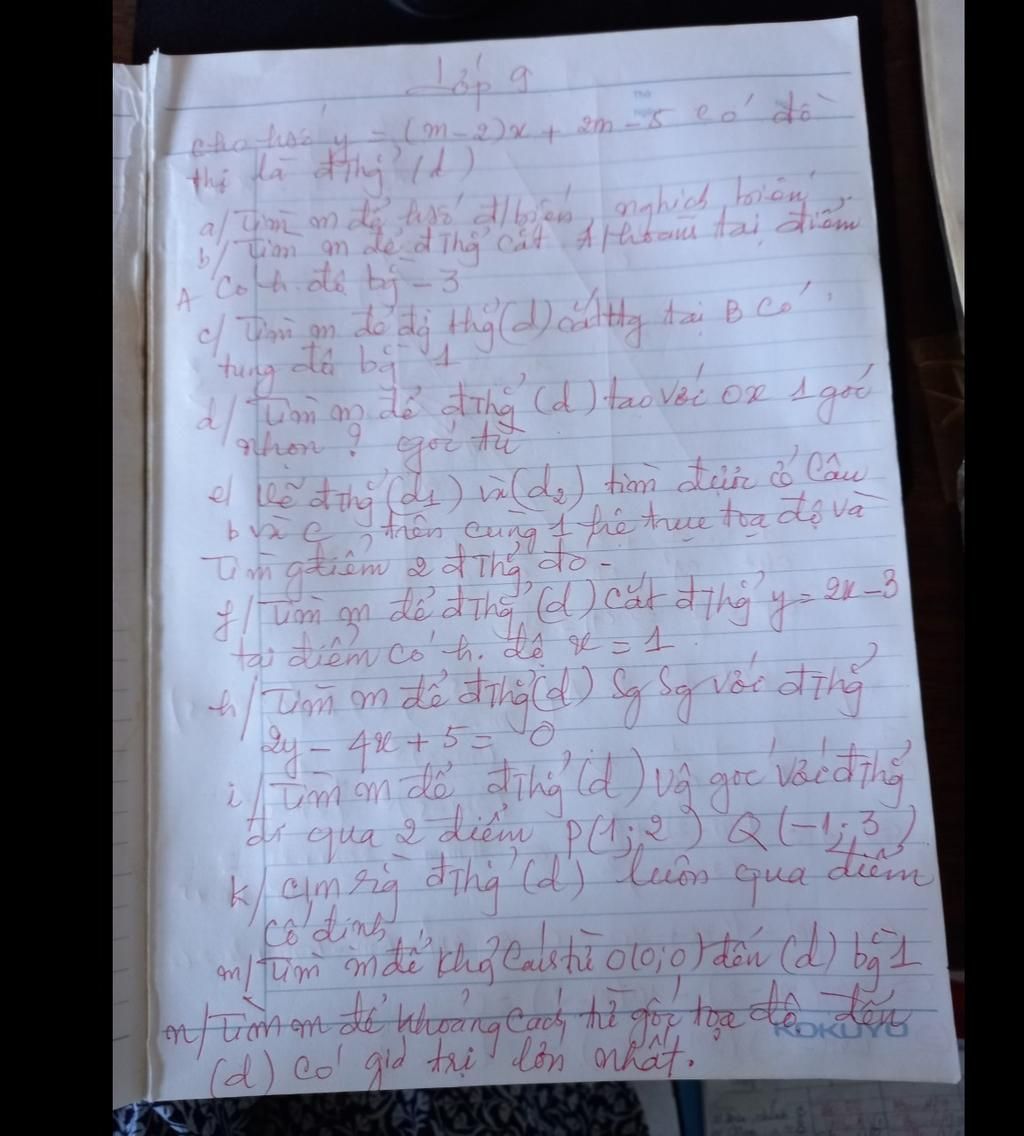 Lớp 9
cho hsố y = (m-2)x + 2m - 5 có đồ
thị là đThg (d)
a/ Tìm m để hsố đ/biến, nghịch biến
b/ Tìm m để đThg cắt t/hoành tại điểm
A có h.độ bg -3
c/ Tìm m để đg thg (d) cắt ttg tại B có
tung độ bg 1
d/ Tìm m để đThg (d) tạo với Ox 1 góc
nhọn? góc tù
e/ Vẽ đThg (d1) và (d2) tìm được ở câu
b và c trên cùng 1 hệ trục tọa độ và
Tìm gđiểm 2 đThg đó -
f/ Tìm m để đThg (d) cắt đThg y = 2x - 3
tại điểm có h. độ x = 1
h/ Tìm m để đThg (d) sg sg với đThg
2y - 4x + 5 = 0
i/ Tìm m để đThg (d) vg góc với đThg
đi qua 2 điểm P(1; 2) Q(-1; 3)
k/ C/m rg đThg (d) luôn qua điểm
cố định
m/ Tìm m để khg cách từ O(0; 0) đến (d) bg 1
n/ Tìm m để khoảng cách từ gốc tọa độ đến
KOKUYO
(d) có giá trị lớn nhất.